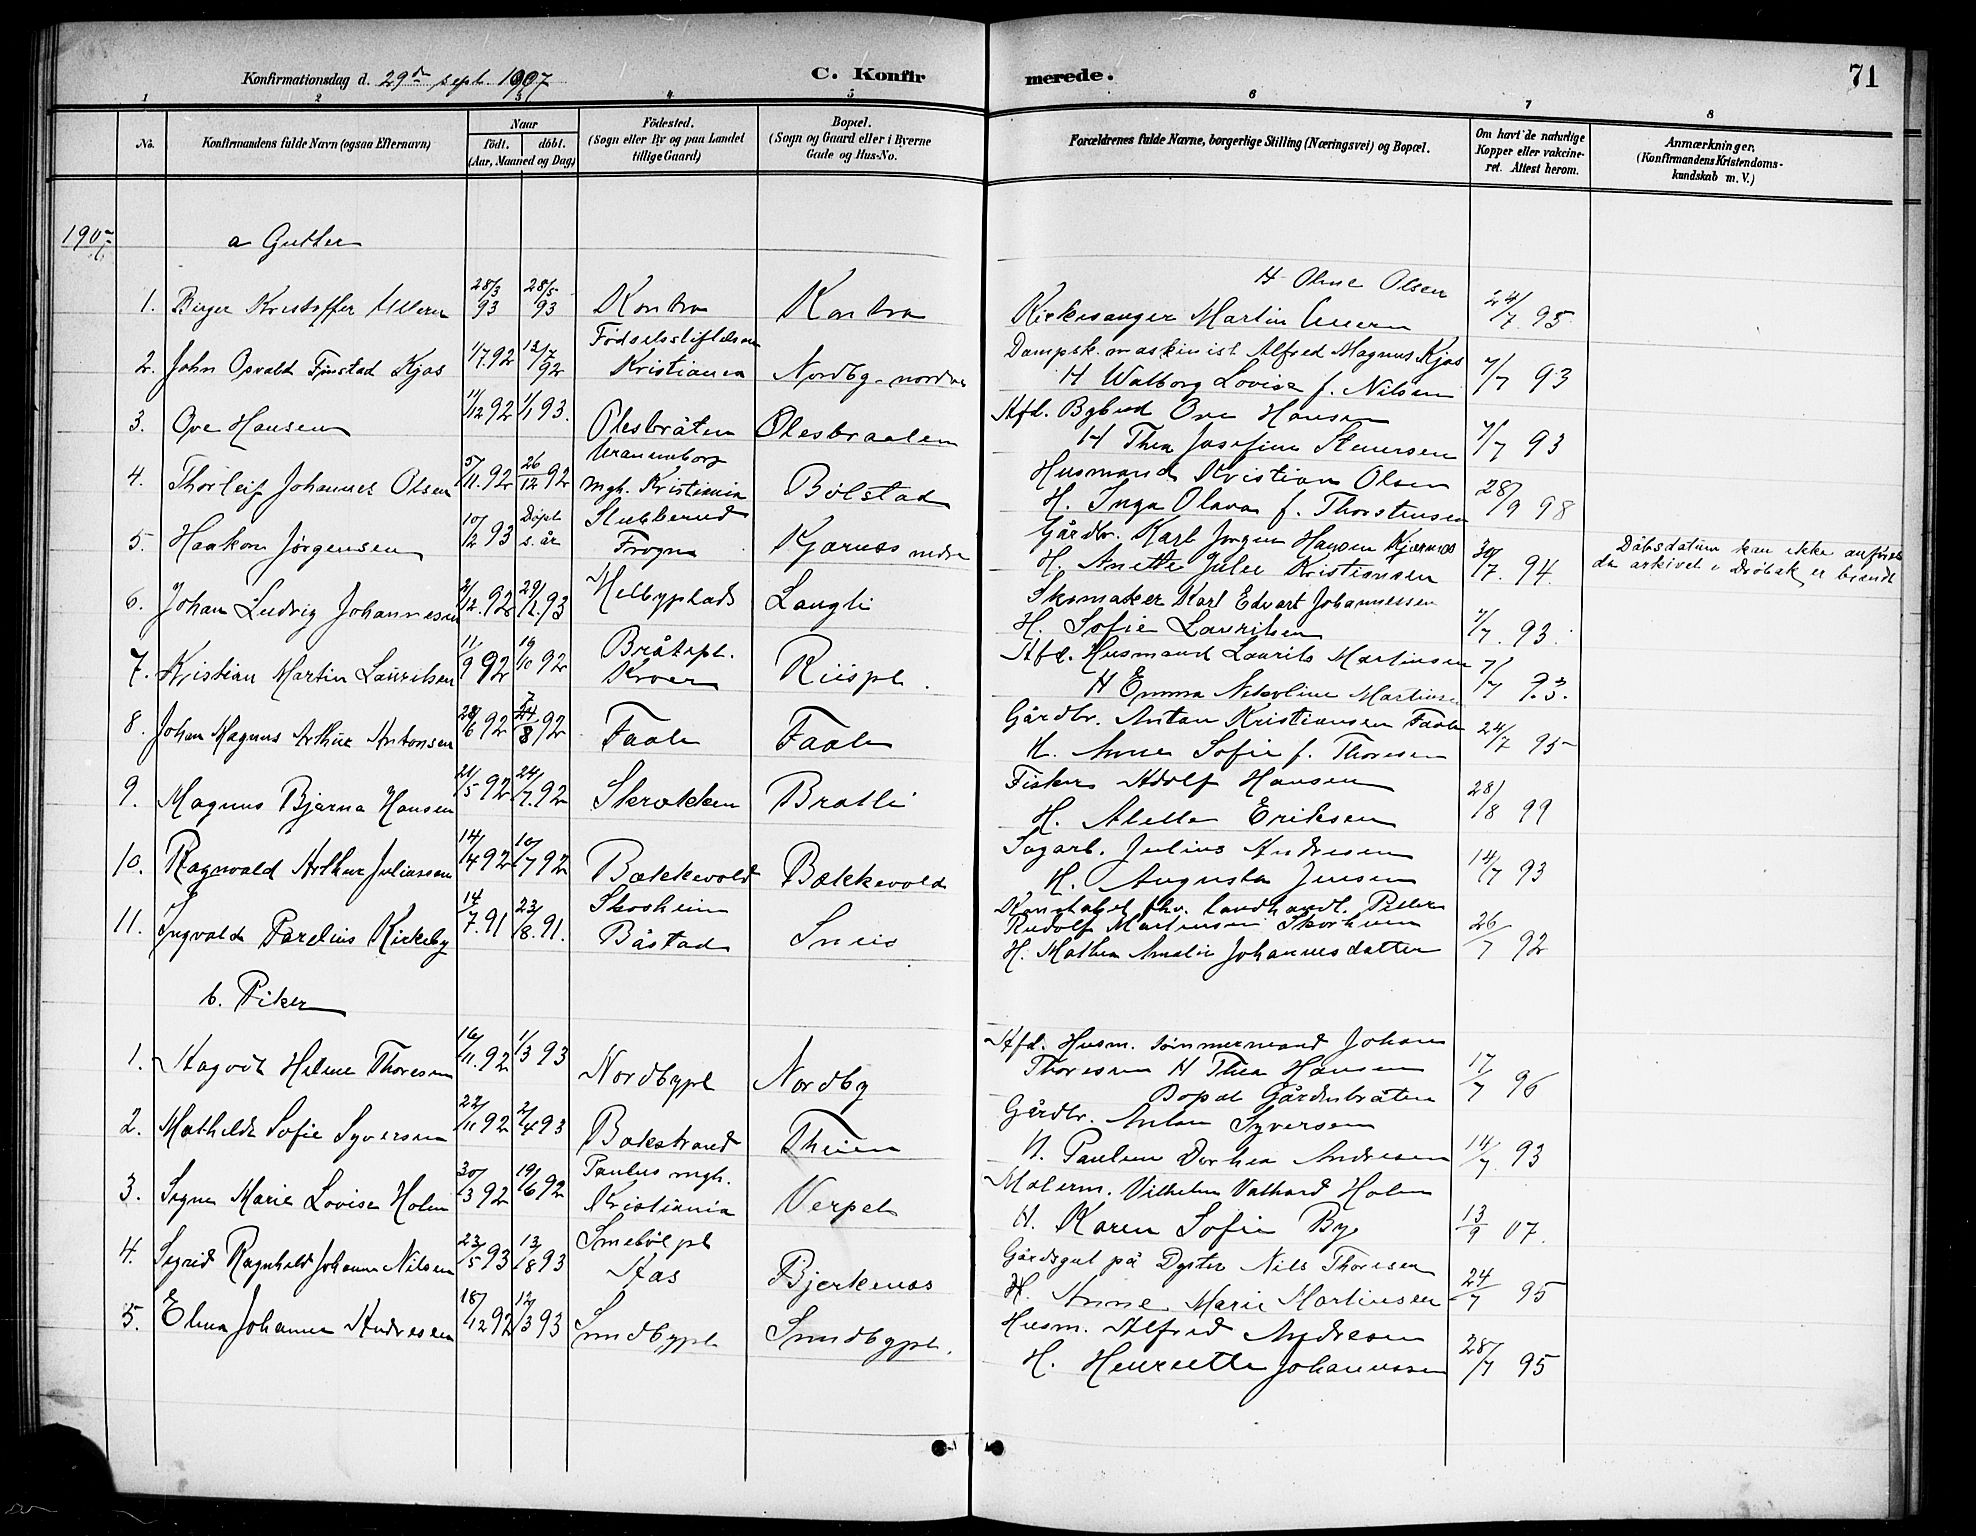 Konfirmationsdag d. 29de sept. 1907
C. Konfir merede.
71
1 2 3 4 5 6 7 8
No.
Konfirmandens fulde Navn (ogsaa Efternavn)
Naar
født. døbt.
(Aar, Maaned og Dag)
Fødested.
(Sogn eller By og paa Landet
tillige Gaard)
Bopæl.
(Sogn og Gaard eller i Byerne
Gade og Hus-No.
Forældrenes fulde Navne, borgerlige Stilling (Næringsvei) og Bopæl.
Om havt de naturlige
Kopper eller vakcine-
ret. Attest herom.
Anmærkninger.
(Konfirmandens Kristendoms-
kundskab m. V.)
1907
a Gutter
H Oline Olsen
1. Birger Kristoffer 28/3 93 28/5 93 Kontra Kontra Kirkesanger Martin 24/7 95
Fødselsstiftelsen Dampsk.maskinist Alfred Magnus Kjos
2. John Osvald Finstad Kjos 1/7.92 13/7 92 Kristiania Nordby nordre H Walborg Lovise f. Nilsen 7/7 93
Afd. Bybud Ove Hansen
3. Ove Hansen 11/12 92 1/1 93. Olesbråten Olesbraaten H Thea Josefine Stenersen 7/7 93
Uranienborg Husmand Kristian Olsen
4. Thorleif Johannes Olsen 5/11.92 26/12 92 mgh. Kristiania Bølstad H. Inga Olava f. Thorstensen 28/9 98
Stubberud Gårdbr. Karl Jørgen Hansen Kjærnes
5. Haakon Jørgensen 10/2 93 Døpt s. år Frogn Kjærnes nedre H. Anette Julie Kristiansen 30/7. 94. Dåbsdatum kan ikke anføres
da arkivet i Drøbak er brændt
Melbyplads Skomaker Karl Edvart Johannessen
6. Johan Ludvig Johannesen 2/12.92 29/12.93 Langli H. Sofie Lauritsen 7/7. 93.
Bråtepl. Afd. Husmand Laurits Martinsen
7. Kristian Martin Lauritsen 11/9 92 19/10 92 Kroer Riispl. H Emma Nikoline Martins 7/7 93.
Gårdbr. Anton Kristiansen Faale
8. Johan Magnus Arthur Antonsen 28/6 92 7/8 92 Faale Faale H. Anne Sofie f. Thoresen 24/7 95
Fisker Adolf Hansen
9. Magnus Bjarne Hansen 21/5 92 24/7.92 Skrækken Bratli H. Alette Eriksen 28/8 99
Sagarb. Julius Andresen
10. Ragnvald Arthur Juliussen 14/4 92 10/7 92 Bækkevold Bækkevold H. Augusta Jensen 14/7 93
Skosheim Konstabel fhv. Landhandl. Peter
Rudolf Martinsen Skosheim
11. Ingvald Parelius Kirkeby 14/7.91 23/8.91. Båstad H. Mathea Amalie Johannesdatter 26/7 92
b. Piker
Afd. Husm. tømmermand Johan
1. Helene Thoresen 16/11.92 1/3 93 Nordbypl Nordby Thoresen H Thea Hansen 17/7 96
Bopæl Gårdsbråten
Gårdbr. Anton Syversen
2. Mathilde Sofie Syversen 22/11 92 2/4 93 Bækstrand H. Pauline Dorthea Andresen 14/7. 93
Paulus mgh. Malerm. Vilhelm Holm
3. Signe Marie Lovise Holm 30/3 92 19/6 92 Kristiania Verpet H. Karen Sofie By 13/9 07.
Smebøl pl Gårdsgut på Dyster Nils Thoresen
4. Sigrid Ragnhild Johanne Nilsen 23/5 93 13/8 93 Aas Bjerkenæs H. Anne Marie Martinsen 24/7 95
Husm. Alfred Andresen
5. Elma Johanne Andresen 18/12 92 12/3 93 Sundbypl Sundbypl. H. Henriette Johannessen 28/7 95